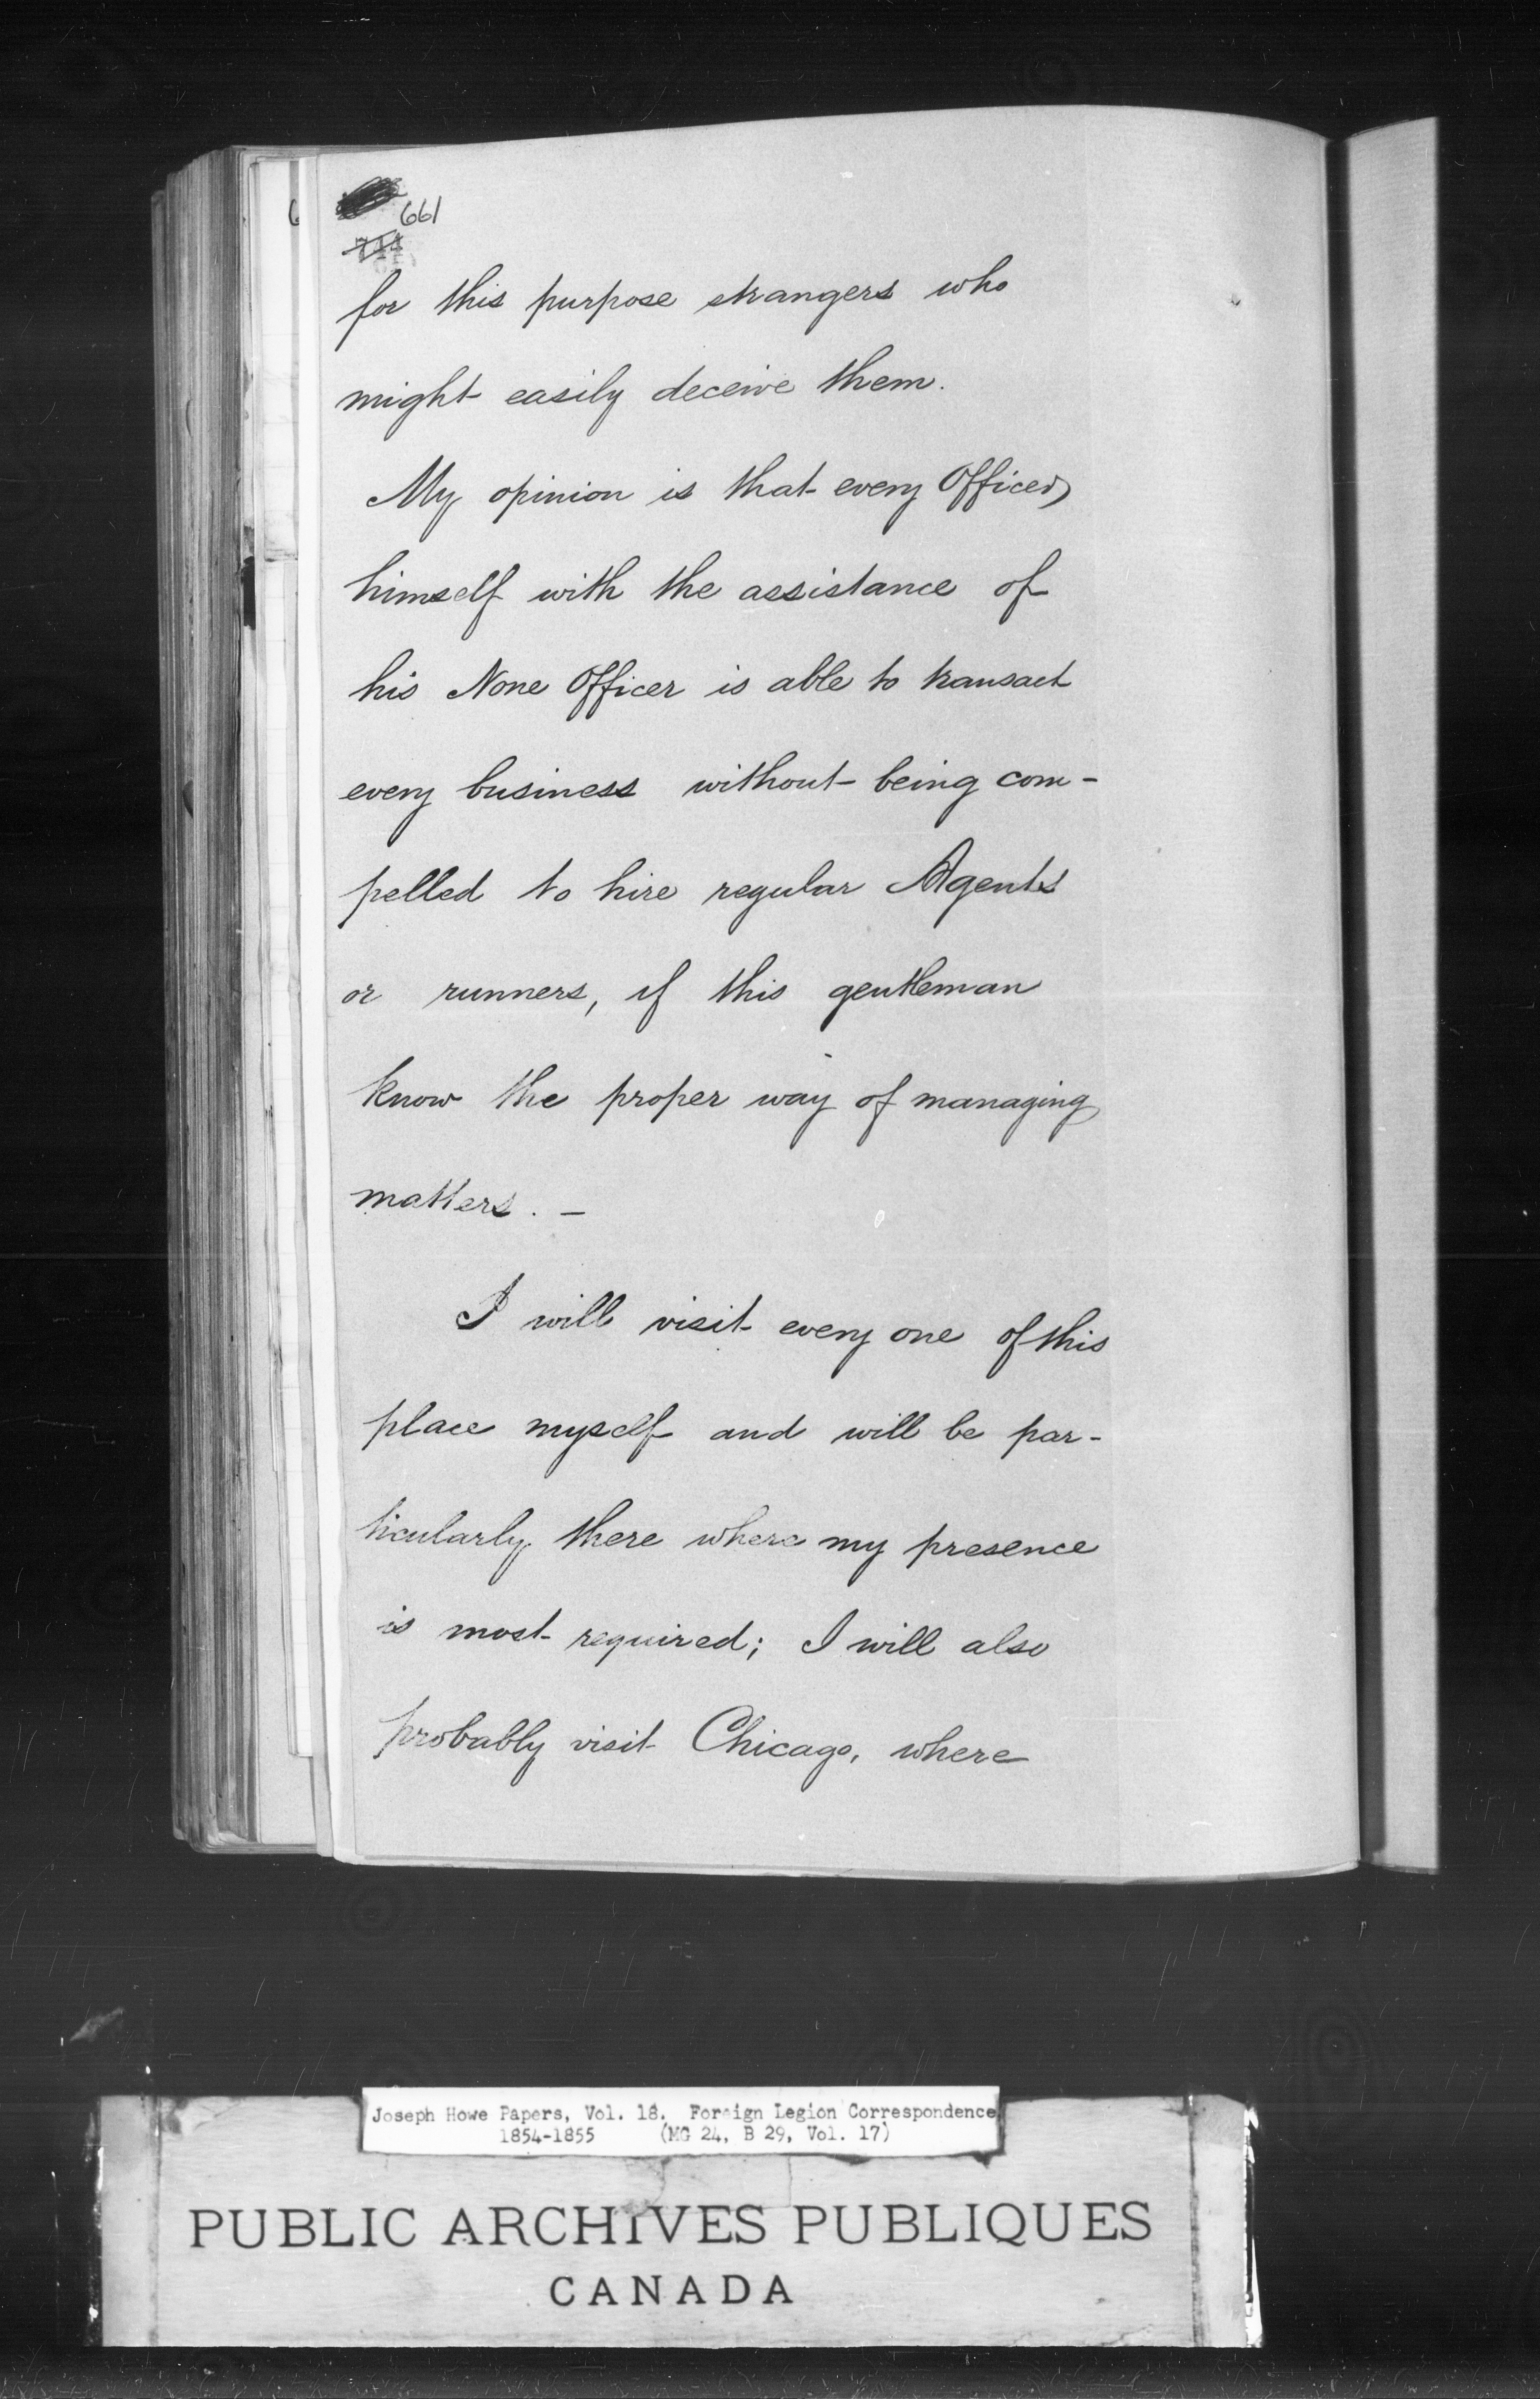 661
744
for this purpose strangers who
might easily deceive them.
My opinion is that every Officer
himself with the assistance of
his None Officer is able to transact
every business without being com-
pelled to hire regular Agents
or runners, if this gentleman
know the proper way of managing
matters. —
I will visit every one of this
place myself and will be par-
ticularly there where my presence
is most required; I will also
probably visit Chicago, where
Joseph Howe Papers, Vol. 18. Foreign Legion Correspondence
1854-1855 (MG 24, B 29, Vol. 17)
PUBLIC ARCHIVES PUBLIQUES
CANADA